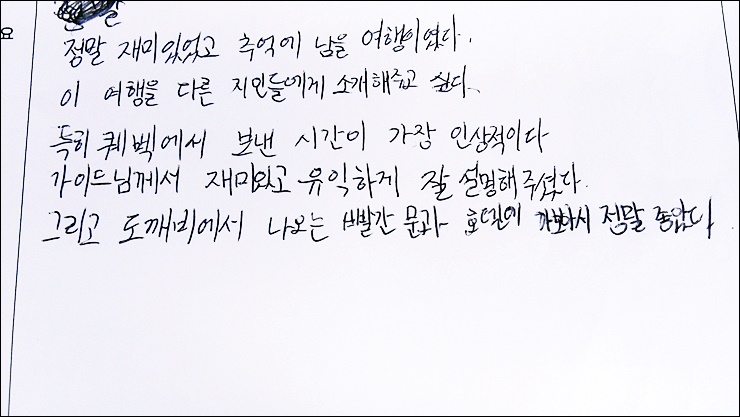 요
정말 재미있었고 추억에 남을 여행이였다.
이 여행을 다른 지인들에게 소개해주고 싶다.
특히 퀘벡에서 보낸 시간이 가장 인상적이다
가이드님께서 재미있고 유익하게 잘 설명해주셨다.
그리고 도깨비에서 나오는 빨간 문과 호텔에 가봐서 정말 좋았다